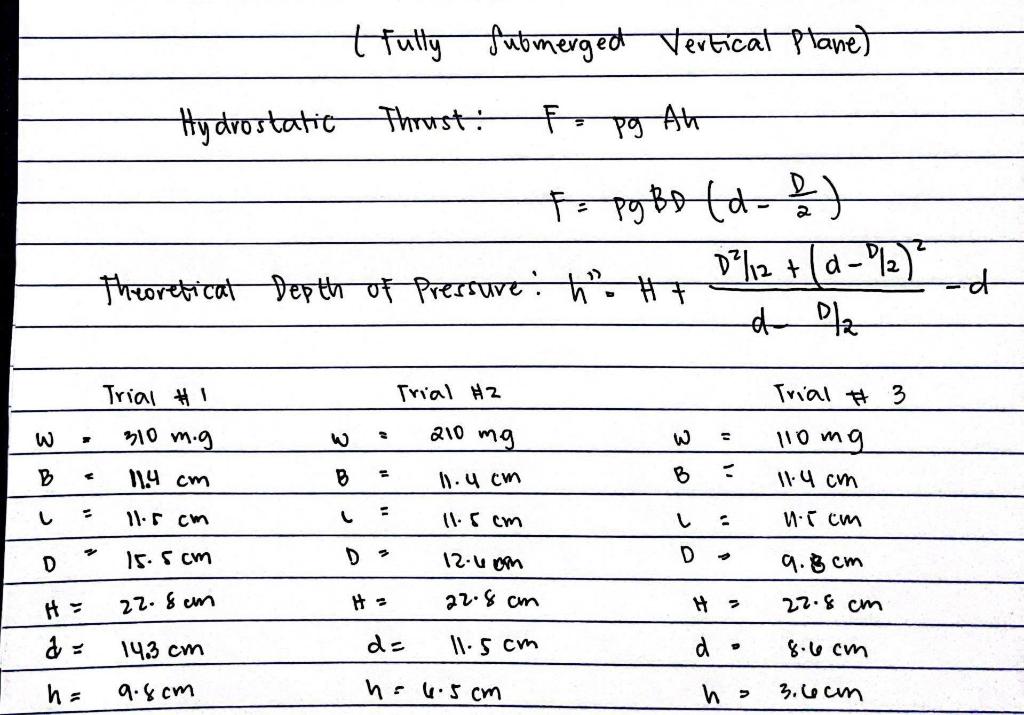 ( Fully Submerged Vertical Plane)
Hydrostatic Thrust : F = ρg Ah
F = ρg BD (d - D/2)
Theoretical Depth of Pressure : h" = H + (D²/12 + (d - D/2)²) / (d - D/2) - d
Trial # 1 Trial #2 Trial # 3
W = 310 m.g W = 210 mg W = 110 mg
B = 11.4 cm B = 11.4 cm B = 11.4 cm
L = 11.5 cm L = 11.5 cm L = 11.5 cm
D = 15.5 cm D = 12.6 cm D = 9.8 cm
H = 22.8 cm H = 22.8 cm H = 22.8 cm
d = 14.3 cm d = 11.5 cm d = 8.6 cm
h = 9.8 cm h = 6.5 cm h = 3.6 cm